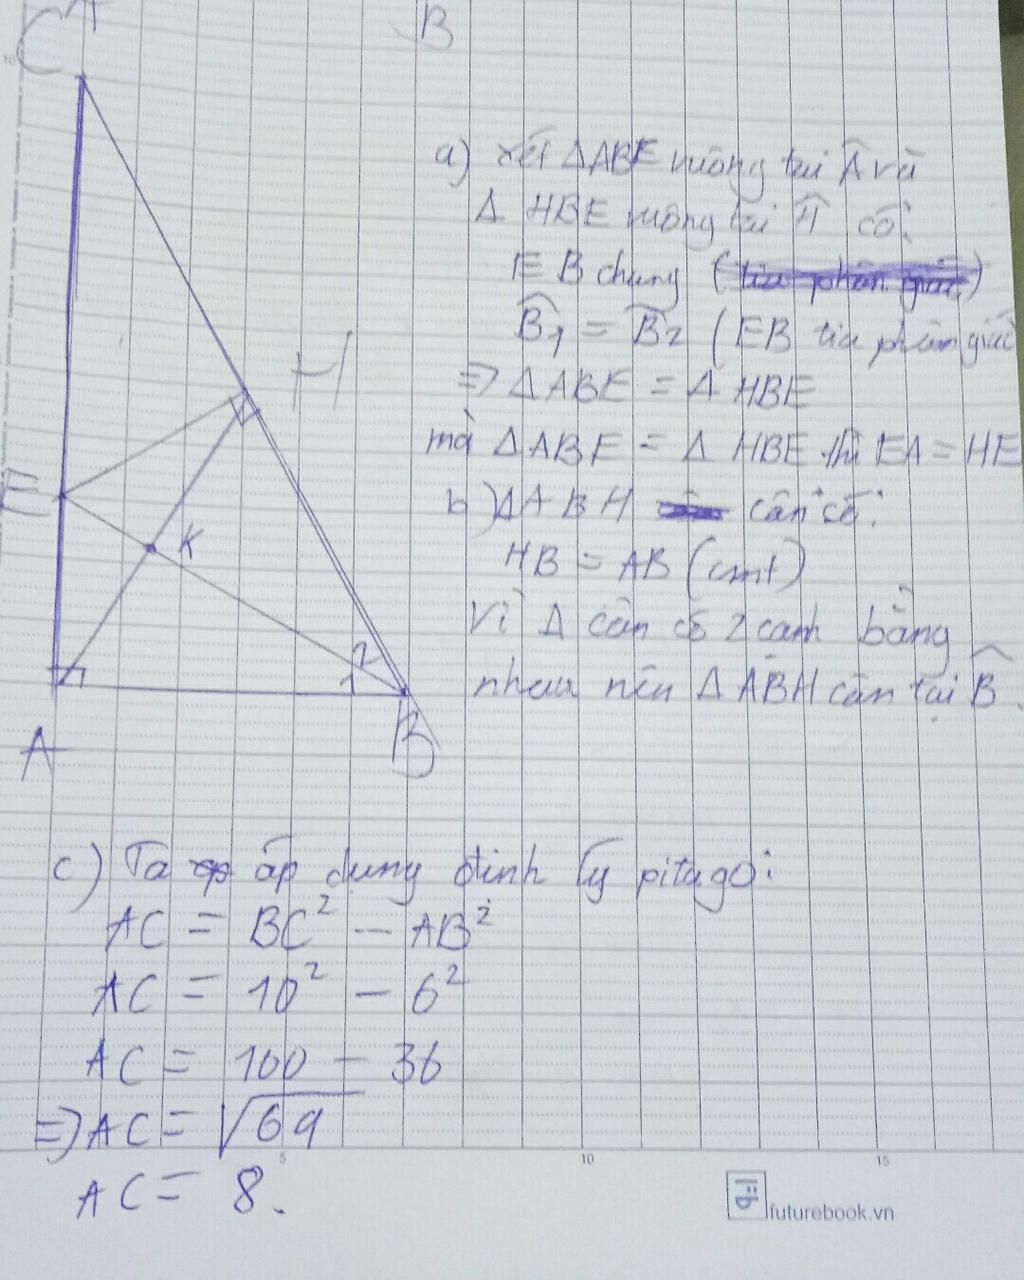 C
B
a) xét ΔABE vuông tại Â và
Δ HBE vuông tại Ĥ có:
EB chung (tia phân giác)
B̂1 = B̂2 (EB tia phân giác
=> ΔABE = Δ HBE
mà ΔABE = Δ HBE thì EA = HE
b) ΔABH cân có:
HB = AB (cmt)
Vì Δ cân có 2 cạnh bằng
nhau nên ΔABH cân tại B̂.
H
E
K
2
1
A
B
c) Ta áp dụng định lý pitago:
AC = BC² - AB²
AC = 10² - 6²
AC = 100 - 36
=> AC = √64
AC = 8.
10
5
10
15
futurebook.vn